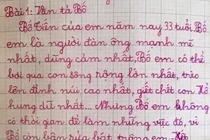 Bài 1: Văn tả Bố
Bố Tiến của em năm nay 33 tuổi. Bố
em là người đàn ông mạnh mẽ
nhất, dũng cảm nhất, Bố em có thể
bơi qua con sông rộng lớn nhất, trèo
lên đỉnh núi cao nhất, giết chết con hổ
hung dữ nhất... Nhưng Bố em không
có thời gian để làm những việc đó, vì
Bố còn bận rửa bát trông em